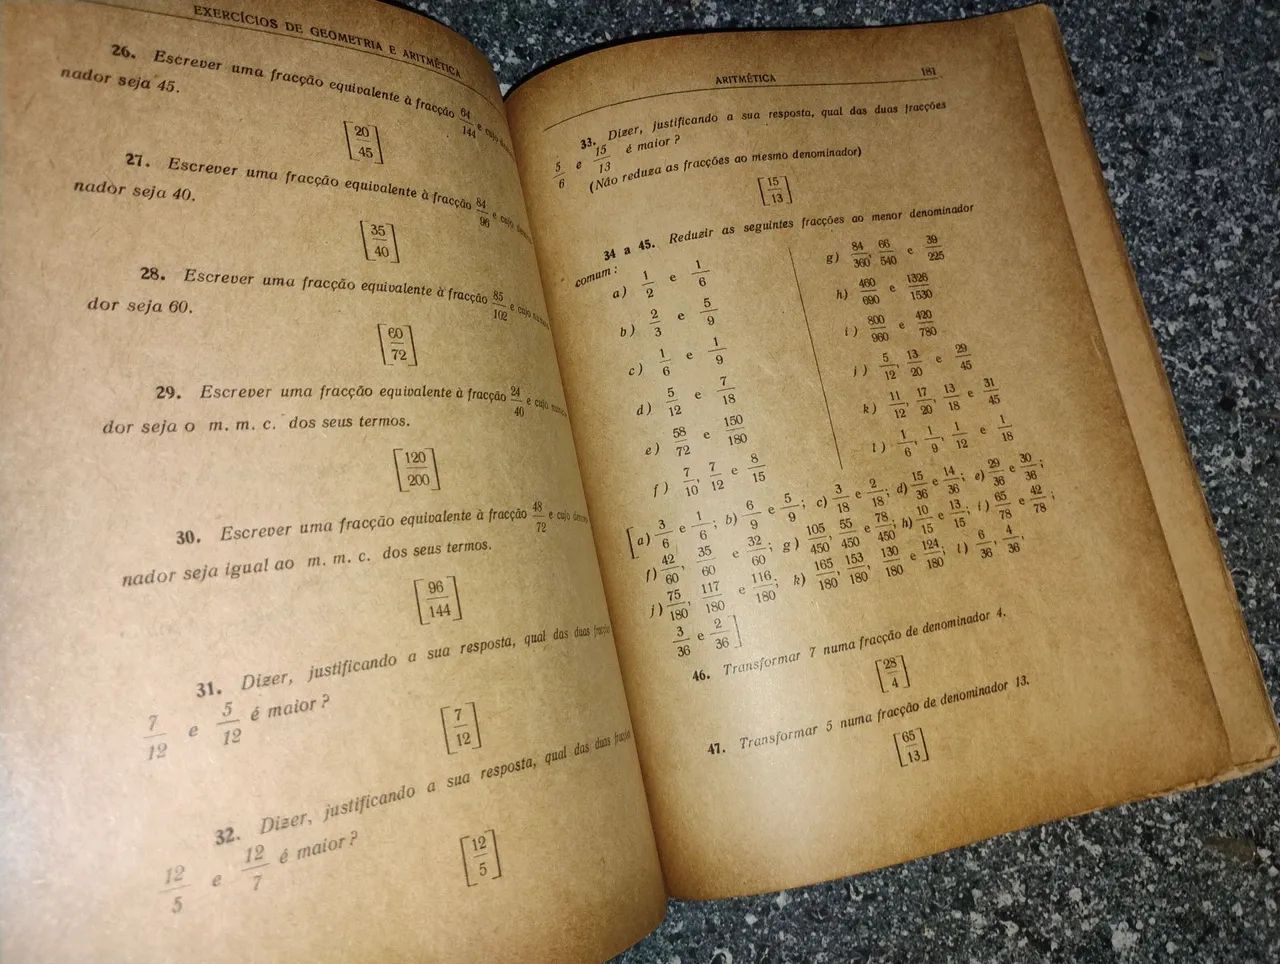 EXERCÍCIOS DE GEOMETRIA E ARITMÉTICA
26. Escrever uma fracção equivalente à fracção 64/144 e cujo
nador seja 45.
[20/45]
27. Escrever uma fracção equivalente à fracção 84/96 e cujo
nador seja 40.
[35/40]
28. Escrever uma fracção equivalente à fracção 85/102 e cujo
dor seja 60.
[60/72]
29. Escrever uma fracção equivalente à fracção 24/40 e cujo
dor seja o m. m. c. dos seus termos.
[120/200]
30. Escrever uma fracção equivalente à fracção 48/72 e cujo
nador seja igual ao m. m. c. dos seus termos.
[96/144]
31. Dizer, justificando a sua resposta, qual das duas
7/12 e 5/12 é maior?
[7/12]
32. Dizer, justificando a sua resposta, qual das duas
12/5 e 12/7 é maior?
[12/5]
ARITMÉTICA 181
33. Dizer, justificando a sua resposta, qual das duas fracções
5/6 e 15/13 é maior?
(Não reduza as fracções ao mesmo denominador)
[15/13]
34 a 45. Reduzir as seguintes fracções ao menor denominador
comum:
a) 1/2 e 1/6
b) 2/3 e 5/9
c) 1/6 e 1/9
d) 5/12 e 7/18
e) 58/72 e 150/180
f) 7/10, 7/12 e 8/15
g) 84/360, 66/540 e 39/225
h) 460/690 e 1326/1530
i) 800/960 e 420/780
j) 5/12, 13/20 e 29/45
k) 11/12, 17/20, 13/18 e 31/45
l) 1/6, 1/9, 1/12 e 1/18
[a) 3/6 e 1/6; b) 6/9 e 5/9; c) 3/18 e 2/18; d) 15/36 e 14/36; e) 29/36 e 30/36;
f) 42/60, 35/60 e 32/60; g) 105/450, 55/450 e 78/450; h) 10/15 e 13/15; i) 65/78 e 42/78;
j) 75/180, 117/180 e 116/180; k) 165/180, 153/180, 130/180 e 124/180; l) 6/36, 4/36,
3/36 e 2/36]
46. Transformar 7 numa fracção de denominador 4.
[28/4]
47. Transformar 5 numa fracção de denominador 13.
[65/13]